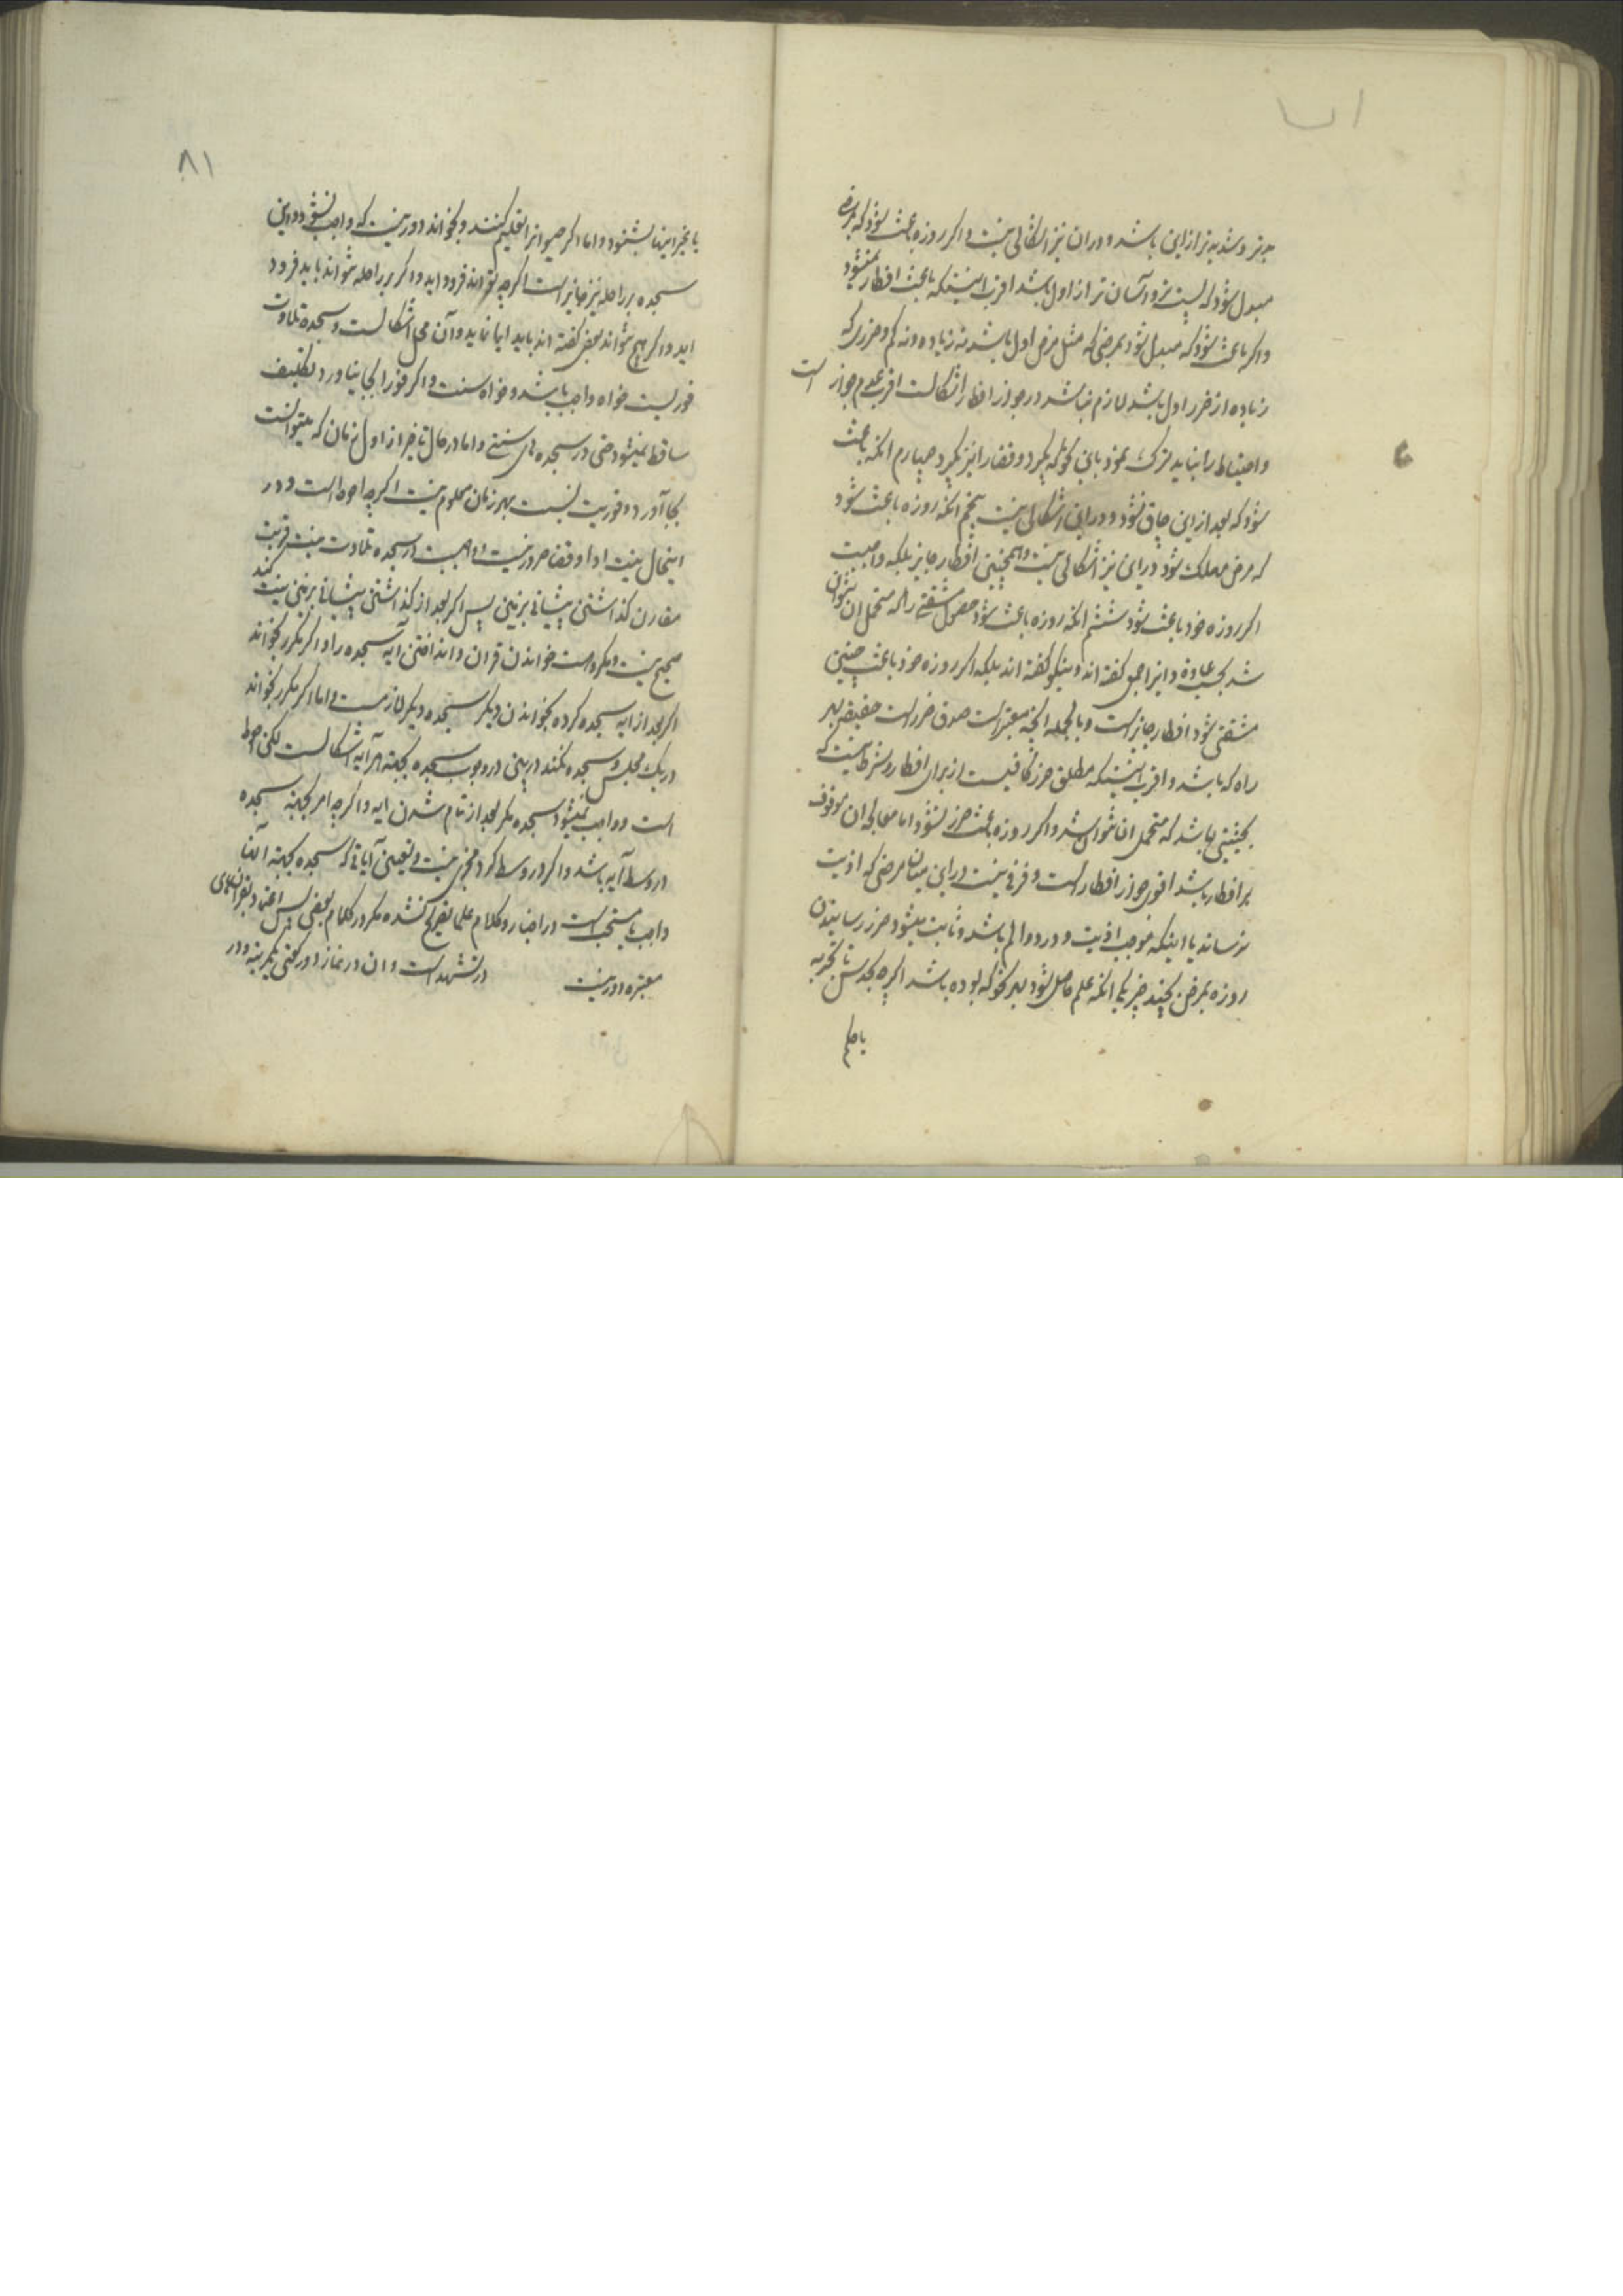 بدتر و شدیدتر از این باشد و در ان نیز اشکالی نیست و اگر روزه باعث شود که مرض
مبدل شود که پست تر و آسان تر از اول باشد اقرب اینستکه باعث افطار نمیشود
و اگر باعث شود که مبدل شود بمرضی که مثل مرض اول باشد نه زیاده و نه کم و ضرری که
زیاده از ضرر اول باشد لازم نباشد در جواز افطار اشکالست اقرب عدم جواز است
و احتیاط را نباید ترک نمود باین که روزه بگیرد و قضا را نیز بگیرد چهارم انکه باعث
شود که بعد از این چاق نشود و در این اشکالی نیست پنجم انکه روزه باعث شود
که مرض مهلک شود در این نیز اشکالی نیست و همچنین افطار جایز بلکه واجبست
اگر روزه خود باعث شود ششم انکه روزه باعث شود حصول مشقتی را که متحمل ان نتوان
شد بحسب عادة و انرا جمعی گفته اند و نیکو گفته اند بلکه اگر روزه خود باعث چنین
مشقتی شود افطار جایز است و بالجمله انچه معتبر است صدق ضرر است حقیقة بهر
راه که باشد و اقرب اینستکه مطلق ضرر کافیست از برای افطار و شرط نیست که
بحیثیتی باشد که متحمل ان نتوان شد و اگر روزه باعث ضرر نشود اما معالجه ان موقوف
بر افطار باشد اقوی جواز افطار است و فرقی نیست در این میان مرضی که اذیت
نرساند یا اینکه موجب اذیت و درد و الم باشد و ثابت میشود ضرر رسانیدن
روزه بمرض بچند چیز یکی انکه علم حاصل شود بهر نحو که بوده باشد اگرچه بحدس یا تجربه
یا حکم
۸۱
یا بغیر اینها بشنود و اما اگر حیوانرا تعلیم کنند و بخواند دور نیست که واجب نشود و این
سجده بر راحله نیز جایز است اگرچه بتواند فرود اید و اگر بر راحله نتواند باید فرود
اید و اگر هیچ نتواند بعضی گفته اند باید ایما نماید و آن محل اشکالست و سجده تلاوت
فوریست خواه واجب باشد و خواه سنت و اگر فورا بجا نیاورد تکلیف
ساقط نمیشود حتی در سجده های سنتی و اما در حال تاخیر از اول زمان که میتوانست
بجا آورد فوریت نسبت بهر زمان معلوم نیست اگرچه احوط است و در
اینحال نیت ادا و قضا ضرور نیست و واجبست در سجده تلاوت نیت قربت
مقارن گذاشتن پیشانی بر زمین پس اگر بعد از گذاشتن پیشانی بر زمین نیت کند
صحیح نیست و مکروهست خواندن قران و انداختن آیه سجده را و اگر مکرر بخواند
اگر بعد از ایه سجده کرده بخواندن دیگر سجده دیگر لازمست و اما اگر مکرر بخواند
در یک مجلس و سجده نکند در بین در وجوب سجده بجهة هر آیه اشکالست لکن احوط
است و واجب نمیشود سجده مگر بعد از تمام شدن ایه و اگرچه امر بجهة سجده
در وسط آیه باشد و اگر در وسط کرد مجزی نیست و تعیین آیاتی که سجده بجهة آنها
واجب یا مستحب است در اخبار و کلام علما تصریح نشده مگر در کلام بعضی پس اعتماد بقرانهای
معتبره دور نیست در تشهد است و ان در نماز دو رکعتی یکمرتبه و در